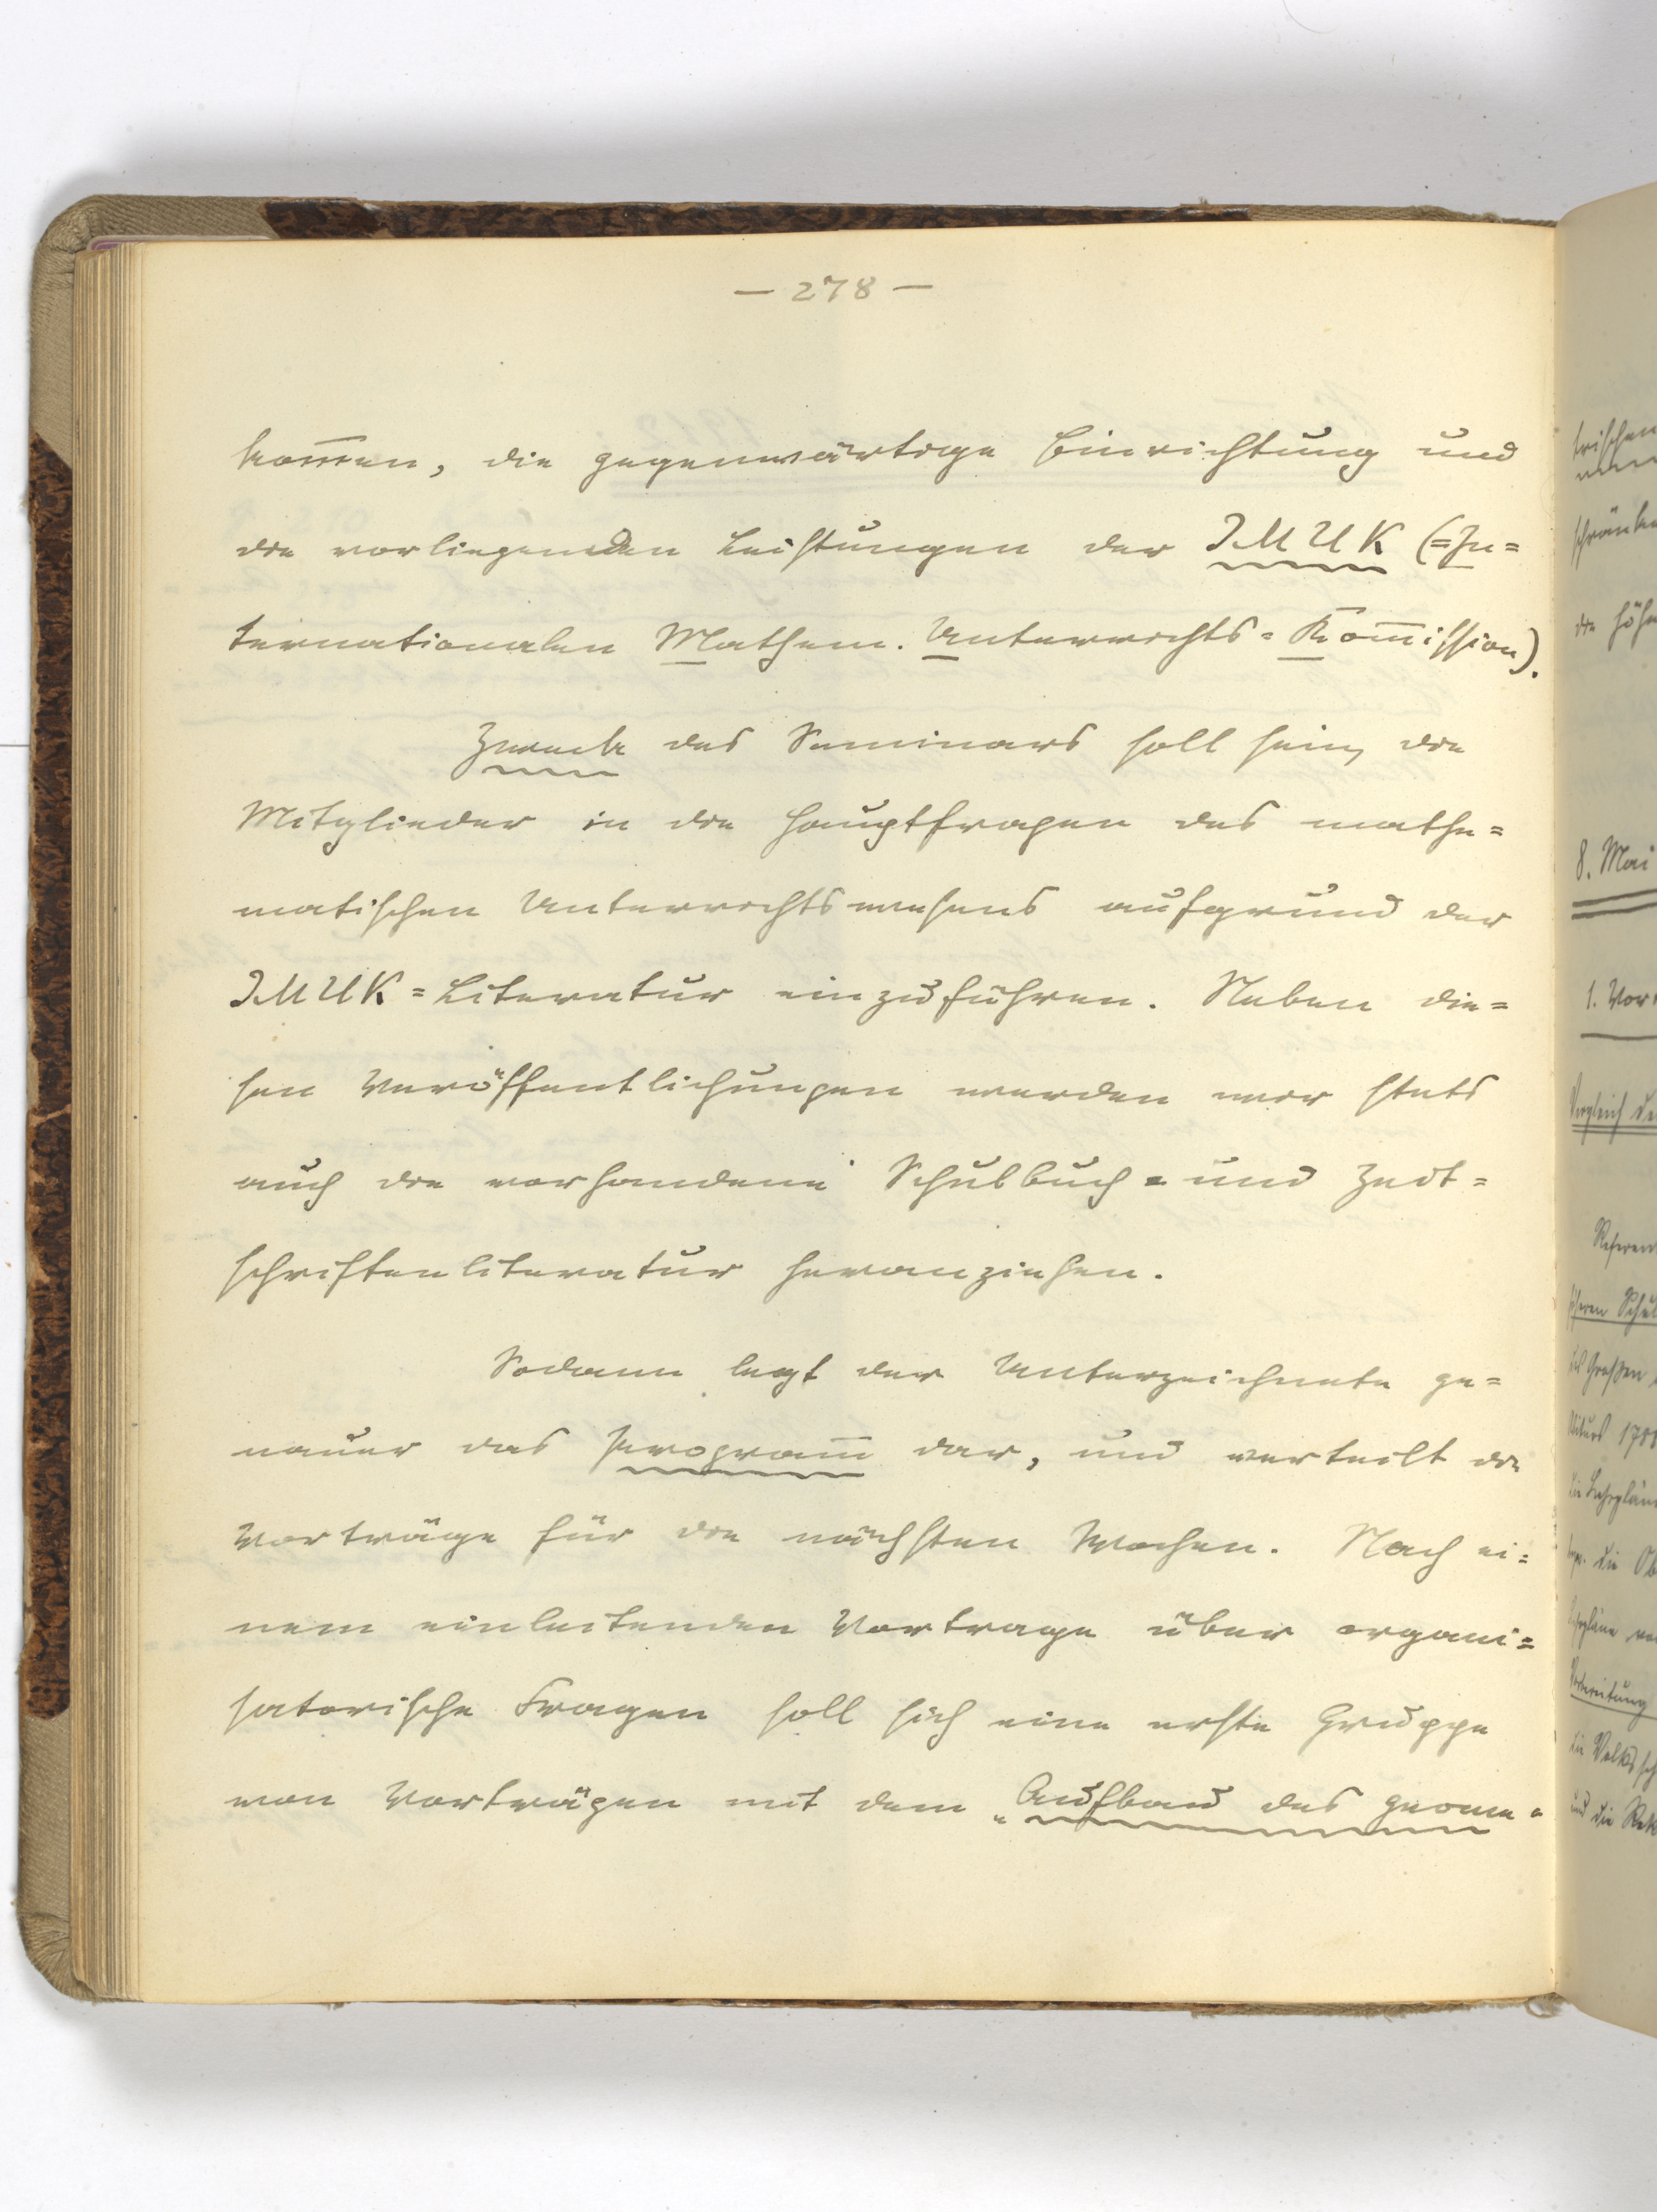 — 278 —
kom̅en, die gegenwärtige Einrichtung und
die vorliegenden Leistungen der IMUK (=In=
ternationalen Mathem. Unterrichts=Kom̅ission).
Zweck des Seminars soll sein, die
Mitglieder in die Hauptfragen des mathe=
matischen Unterrichtswesens aufgrund der
IMUK=Literatur einzuführen. Neben die=
sen Veröffentlichungen werden wir stets
auch die vorhandene Schulbuch= und Zeit=
schriftenliteratur heranziehen.
Sodann legt der Unterzeichnete ge=
nauer das Program̅ dar, und verteilt die
Vorträge für die nächsten Wochen. Nach ei=
nem einleitenden Vortrage über organi=
satorische Fragen soll sich eine erste Gruppe
von Vorträgen mit dem „Aufbau des geome=
trischen
schränke
die höhe
8. Mai
1. Vor
Vergleich de
Referen
höheren Schul
des Großen
die Lehrpläne
die Ob
Lehrpläne
Vorbereitung
die Volkssch
und die Rek